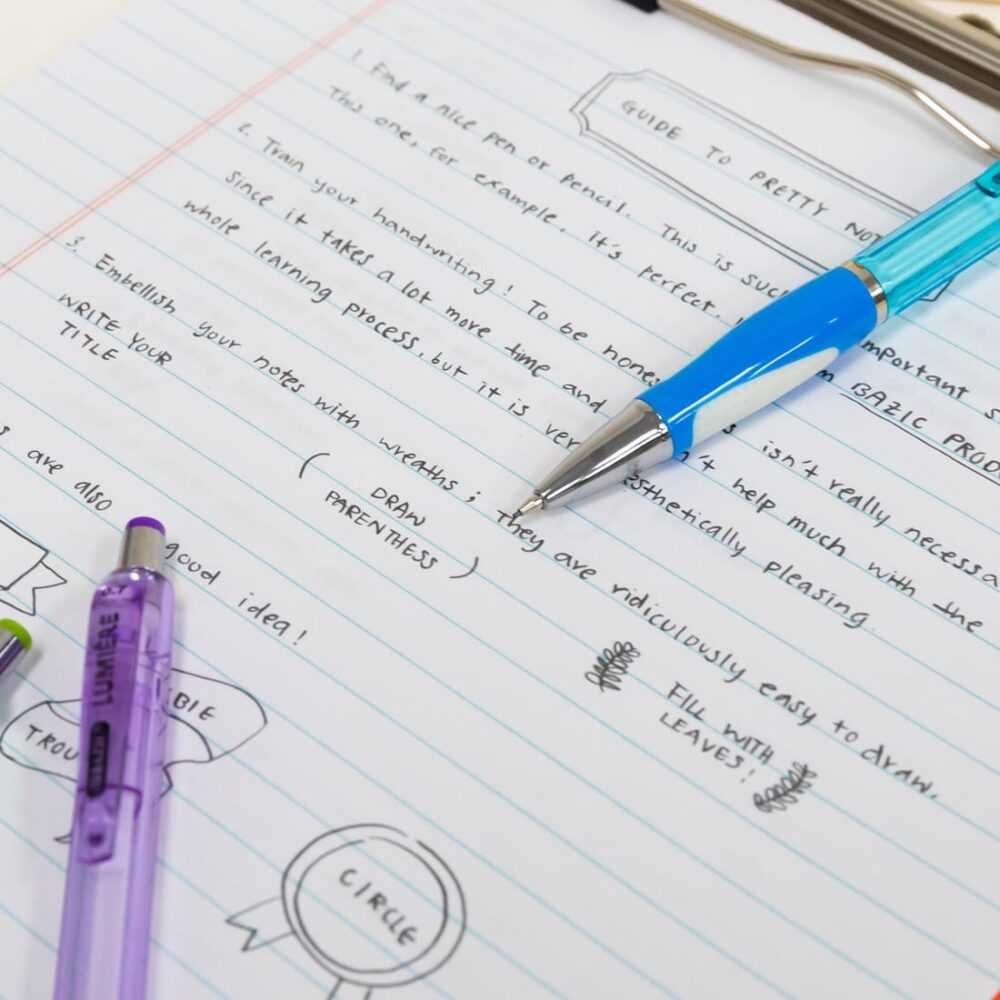 GUIDE TO PRETTY
1. Find a nice pen or pencil. This is important
This one, for example, it's perfect. BAZIC PROD
2. Train your handwriting! To be hones isn't really
since it takes a lot more time and 't help much with the
whole learning process, but it is aesthetically pleasing.
3. Embellish your notes with wreaths; They are ridiculously easy to draw.
WRITE YOUR
TITLE
( DRAW
PARENTHESS )
FILL WITH
LEAVES!
are also good idea!
CIRCLE
LUMIÈRE
0.7